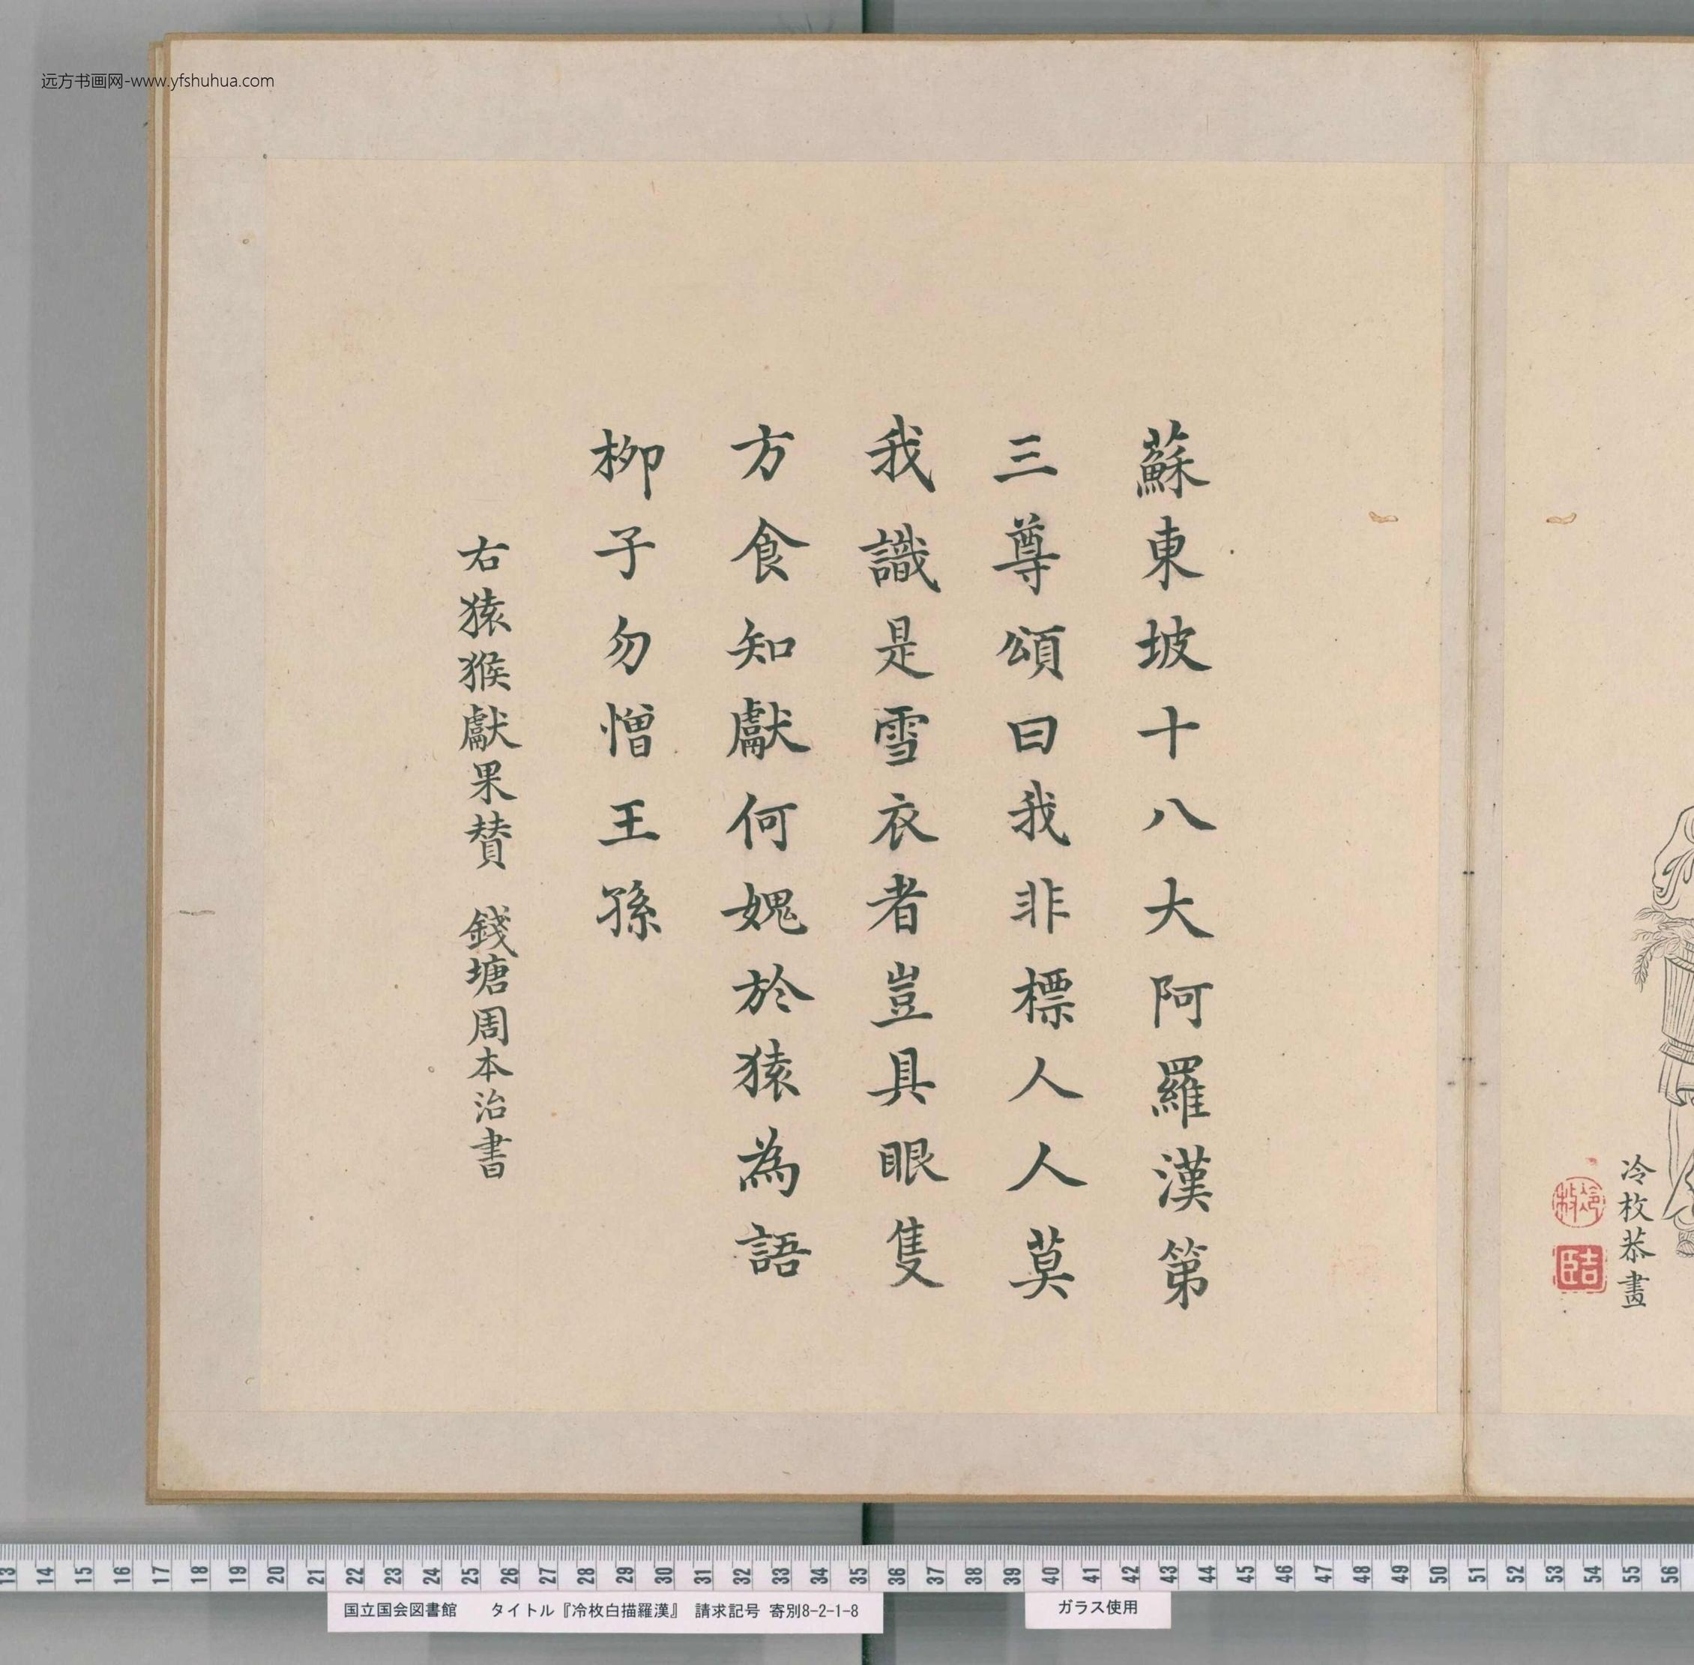 远方书画网-www.yfshuhua.com
蘇東坡十八大阿羅漢第
三尊頌曰我非標人人莫
我識是雪衣者豈具眼隻
方食知獻何媿於猿為語
栁子勿憎王孫
右猿猴獻果賛　錢塘周本治書
冷枚恭畫
冷枚
吉臣
13 14 15 16 17 18 19 20 21 22 23 24 25 26 27 28 29 30 31 32 33 34 35 36 37 38 39 40 41 42 43 44 45 46 47 48 49 50 51 52 53 54 55 56
国立国会図書館　タイトル『冷枚白描羅漢』 請求記号 寄別8-2-1-8
ガラス使用